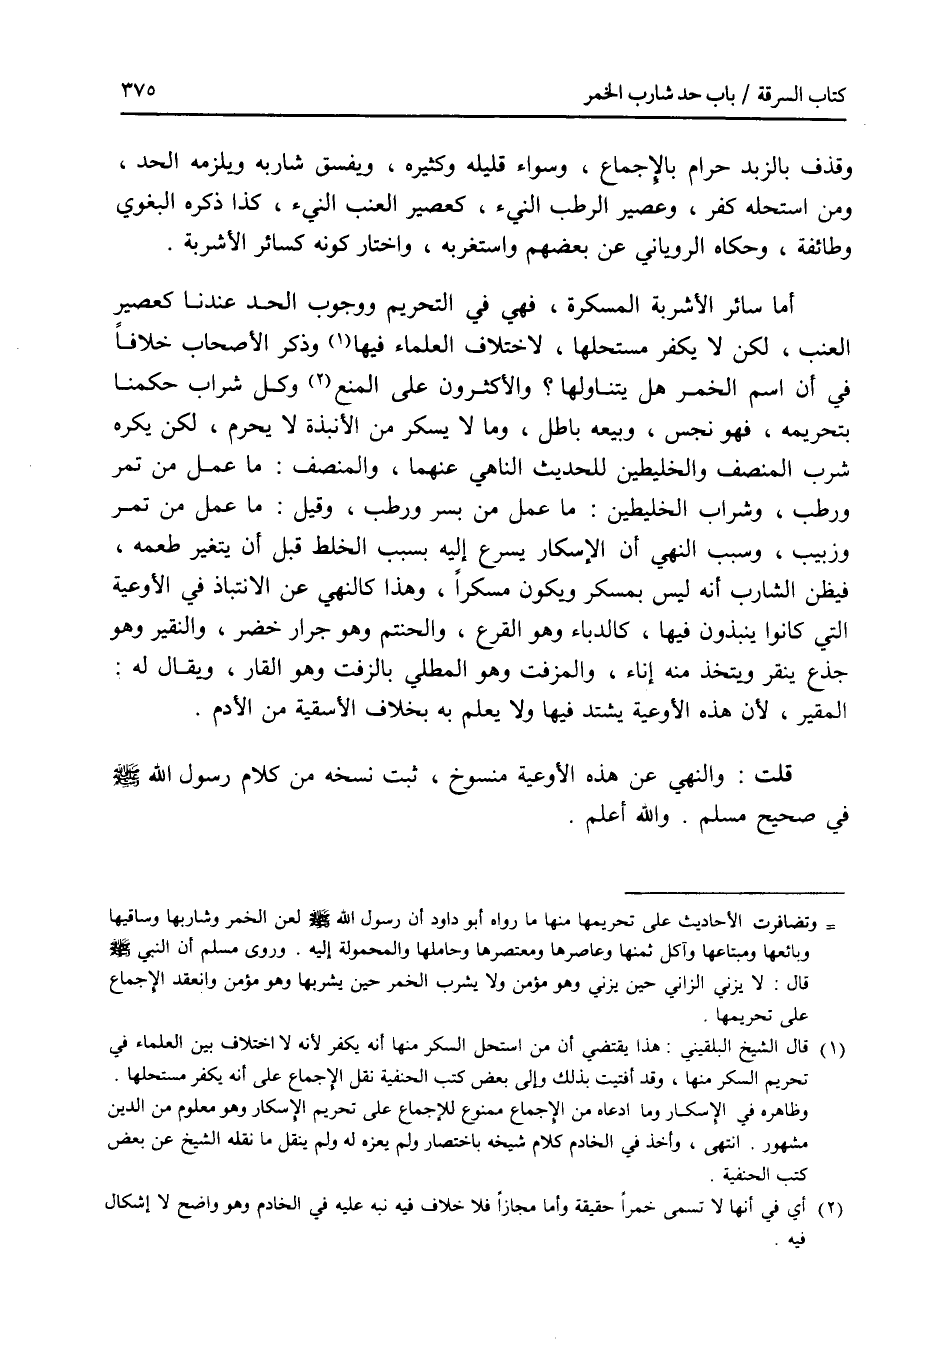 كتاب السرقة / باب حد شارب الخمر ٣٧٥
وقذف بالزبد حرام بالإجماع ، وسواء قليله وكثيره ، ويفسق شاربه ويلزمه الحد ،
ومن استحله كفر ، وعصير الرطب النيء ، كعصير العنب النيء ، كذا ذكره البغوي
وطائفة ، وحكاه الروياني عن بعضهم واستغربه ، واختار كونه كسائر الأشربة .
أما سائر الأشربة المسكرة ، فهي في التحريم ووجوب الحد عندنا كعصير
العنب ، لكن لا يكفر مستحلها ، لاختلاف العلماء فيها(١) وذكر الأصحاب خلافاً
في أن اسم الخمر هل يتناولها ؟ والأكثرون على المنع(٢) وكل شراب حكمنا
بتحريمه ، فهو نجس ، وبيعه باطل ، وما لا يسكر من الأنبذة لا يحرم ، لكن يكره
شرب المنصف والخليطين للحديث الناهي عنهما ، والمنصف : ما عمل من تمر
ورطب ، وشراب الخليطين : ما عمل من بسر ورطب ، وقيل : ما عمل من تمر
وزبيب ، وسبب النهي أن الإسكار يسرع إليه بسبب الخلط قبل أن يتغير طعمه ،
فيظن الشارب أنه ليس بمسكر ويكون مسكراً ، وهذا كالنهي عن الانتباذ في الأوعية
التي كانوا ينبذون فيها ، كالدباء وهو القرع ، والحنتم وهو جرار خضر ، والنقير وهو
جذع ينقر ويتخذ منه إناء ، والمزفت وهو المطلي بالزفت وهو القار ، ويقال له :
المقير ، لأن هذه الأوعية يشتد فيها ولا يعلم به بخلاف الأسقية من الأدم .
قلت : والنهي عن هذه الأوعية منسوخ ، ثبت نسخه من كلام رسول الله ﷺ
في صحيح مسلم . والله أعلم .
= وتضافرت الأحاديث على تحريمها منها ما رواه أبو داود أن رسول الله ﷺ لعن الخمر وشاربها وساقيها
وبائعها ومبتاعها وآكل ثمنها وعاصرها ومعتصرها وحاملها والمحمولة إليه . وروى مسلم أن النبي ﷺ
قال : لا يزني الزاني حين يزني وهو مؤمن ولا يشرب الخمر حين يشربها وهو مؤمن وانعقد الإجماع
على تحريمها .
(١) قال الشيخ البلقيني : هذا يقتضي أن من استحل السكر منها أنه يكفر لأنه لا اختلاف بين العلماء في
تحريم السكر منها ، وقد أفتيت بذلك وإلى بعض كتب الحنفية نقل الإجماع على أنه يكفر مستحلها .
وظاهره في الإسكار وما ادعاه من الإجماع ممنوع للإجماع على تحريم الإسكار وهو معلوم من الدين
مشهور . انتهى ، وأخذ في الخادم كلام شيخه باختصار ولم يعزه له ولم ينقل ما نقله الشيخ عن بعض
كتب الحنفية .
(٢) أي في أنها لا تسمى خمراً حقيقة وأما مجازاً فلا خلاف فيه نبه عليه في الخادم وهو واضح لا إشكال
فيه .